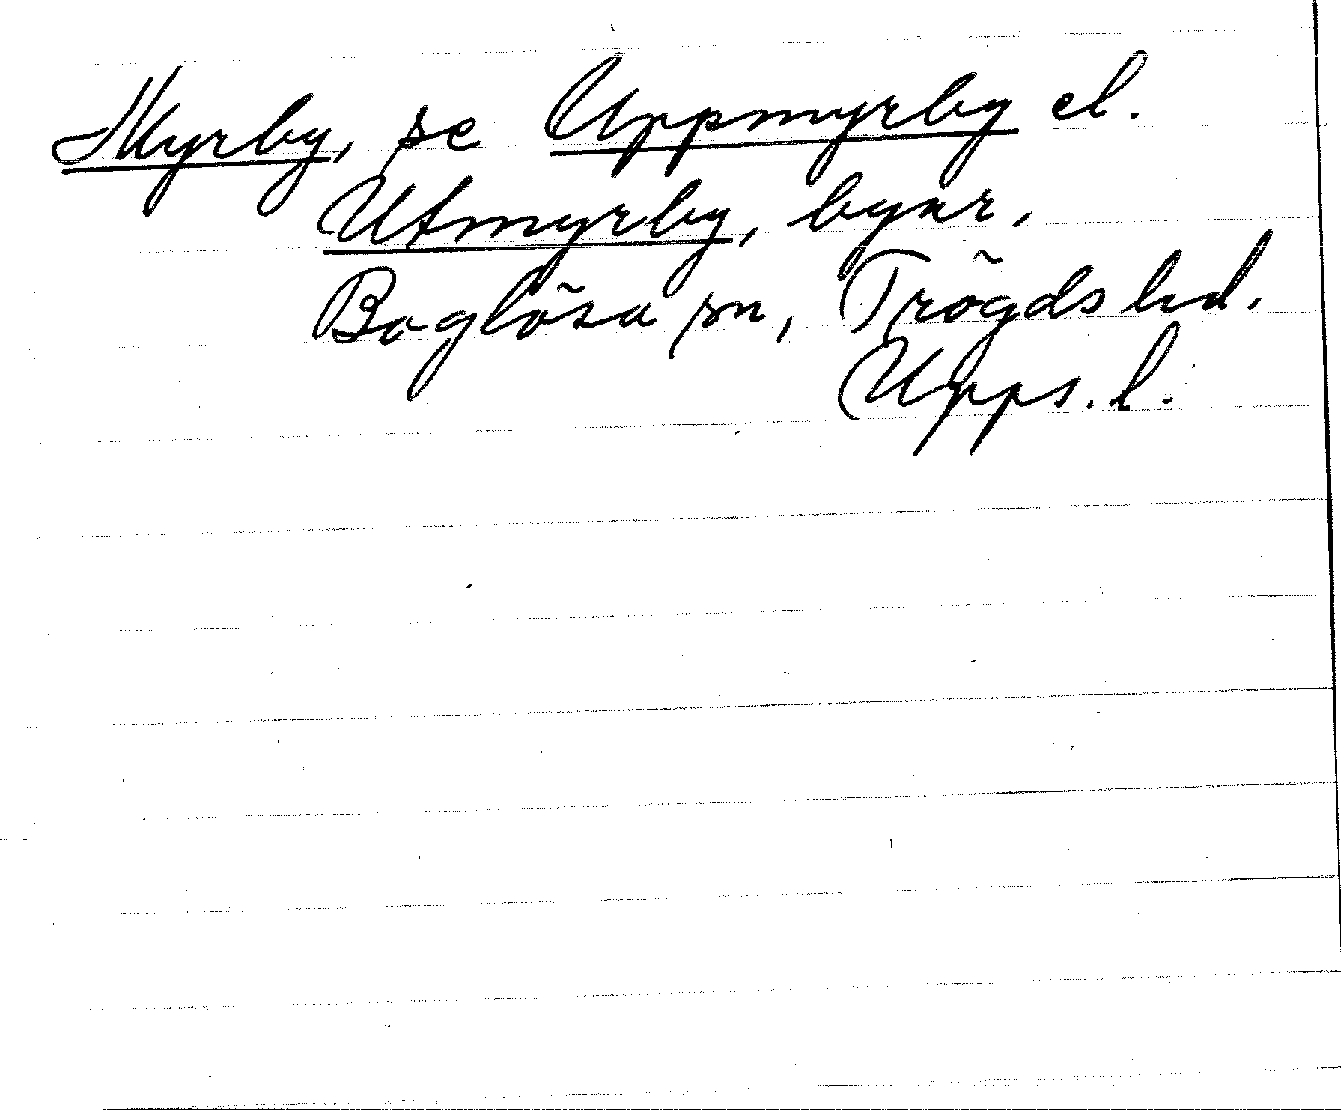 Myrby, se Uppmyrby el.
Utmyrby, byar,
Boglösa sn, Trögds hd.
Upps. l.